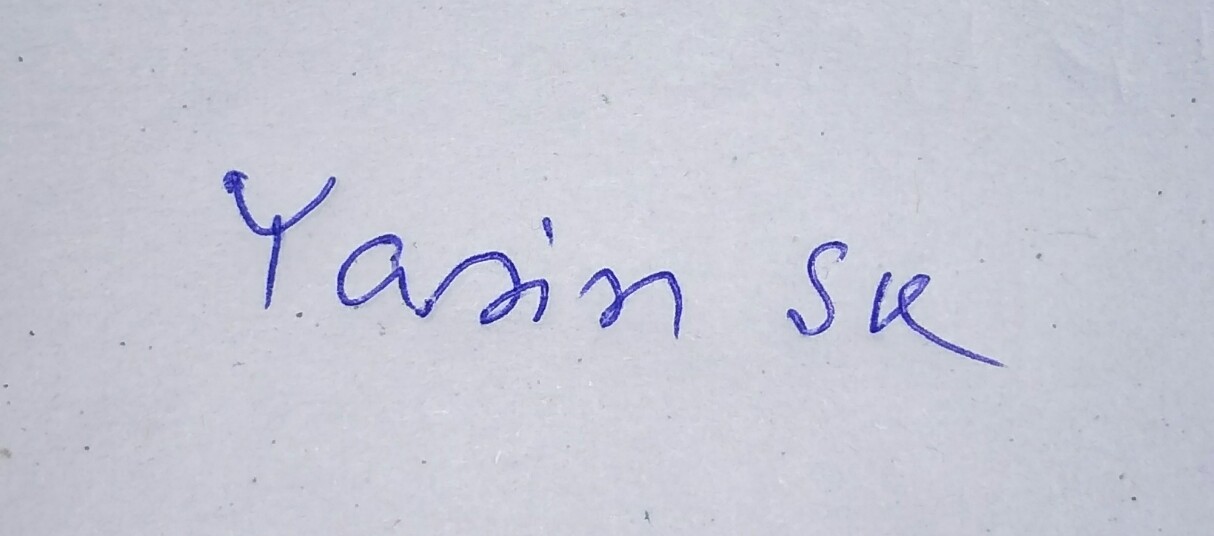 Yasin SK